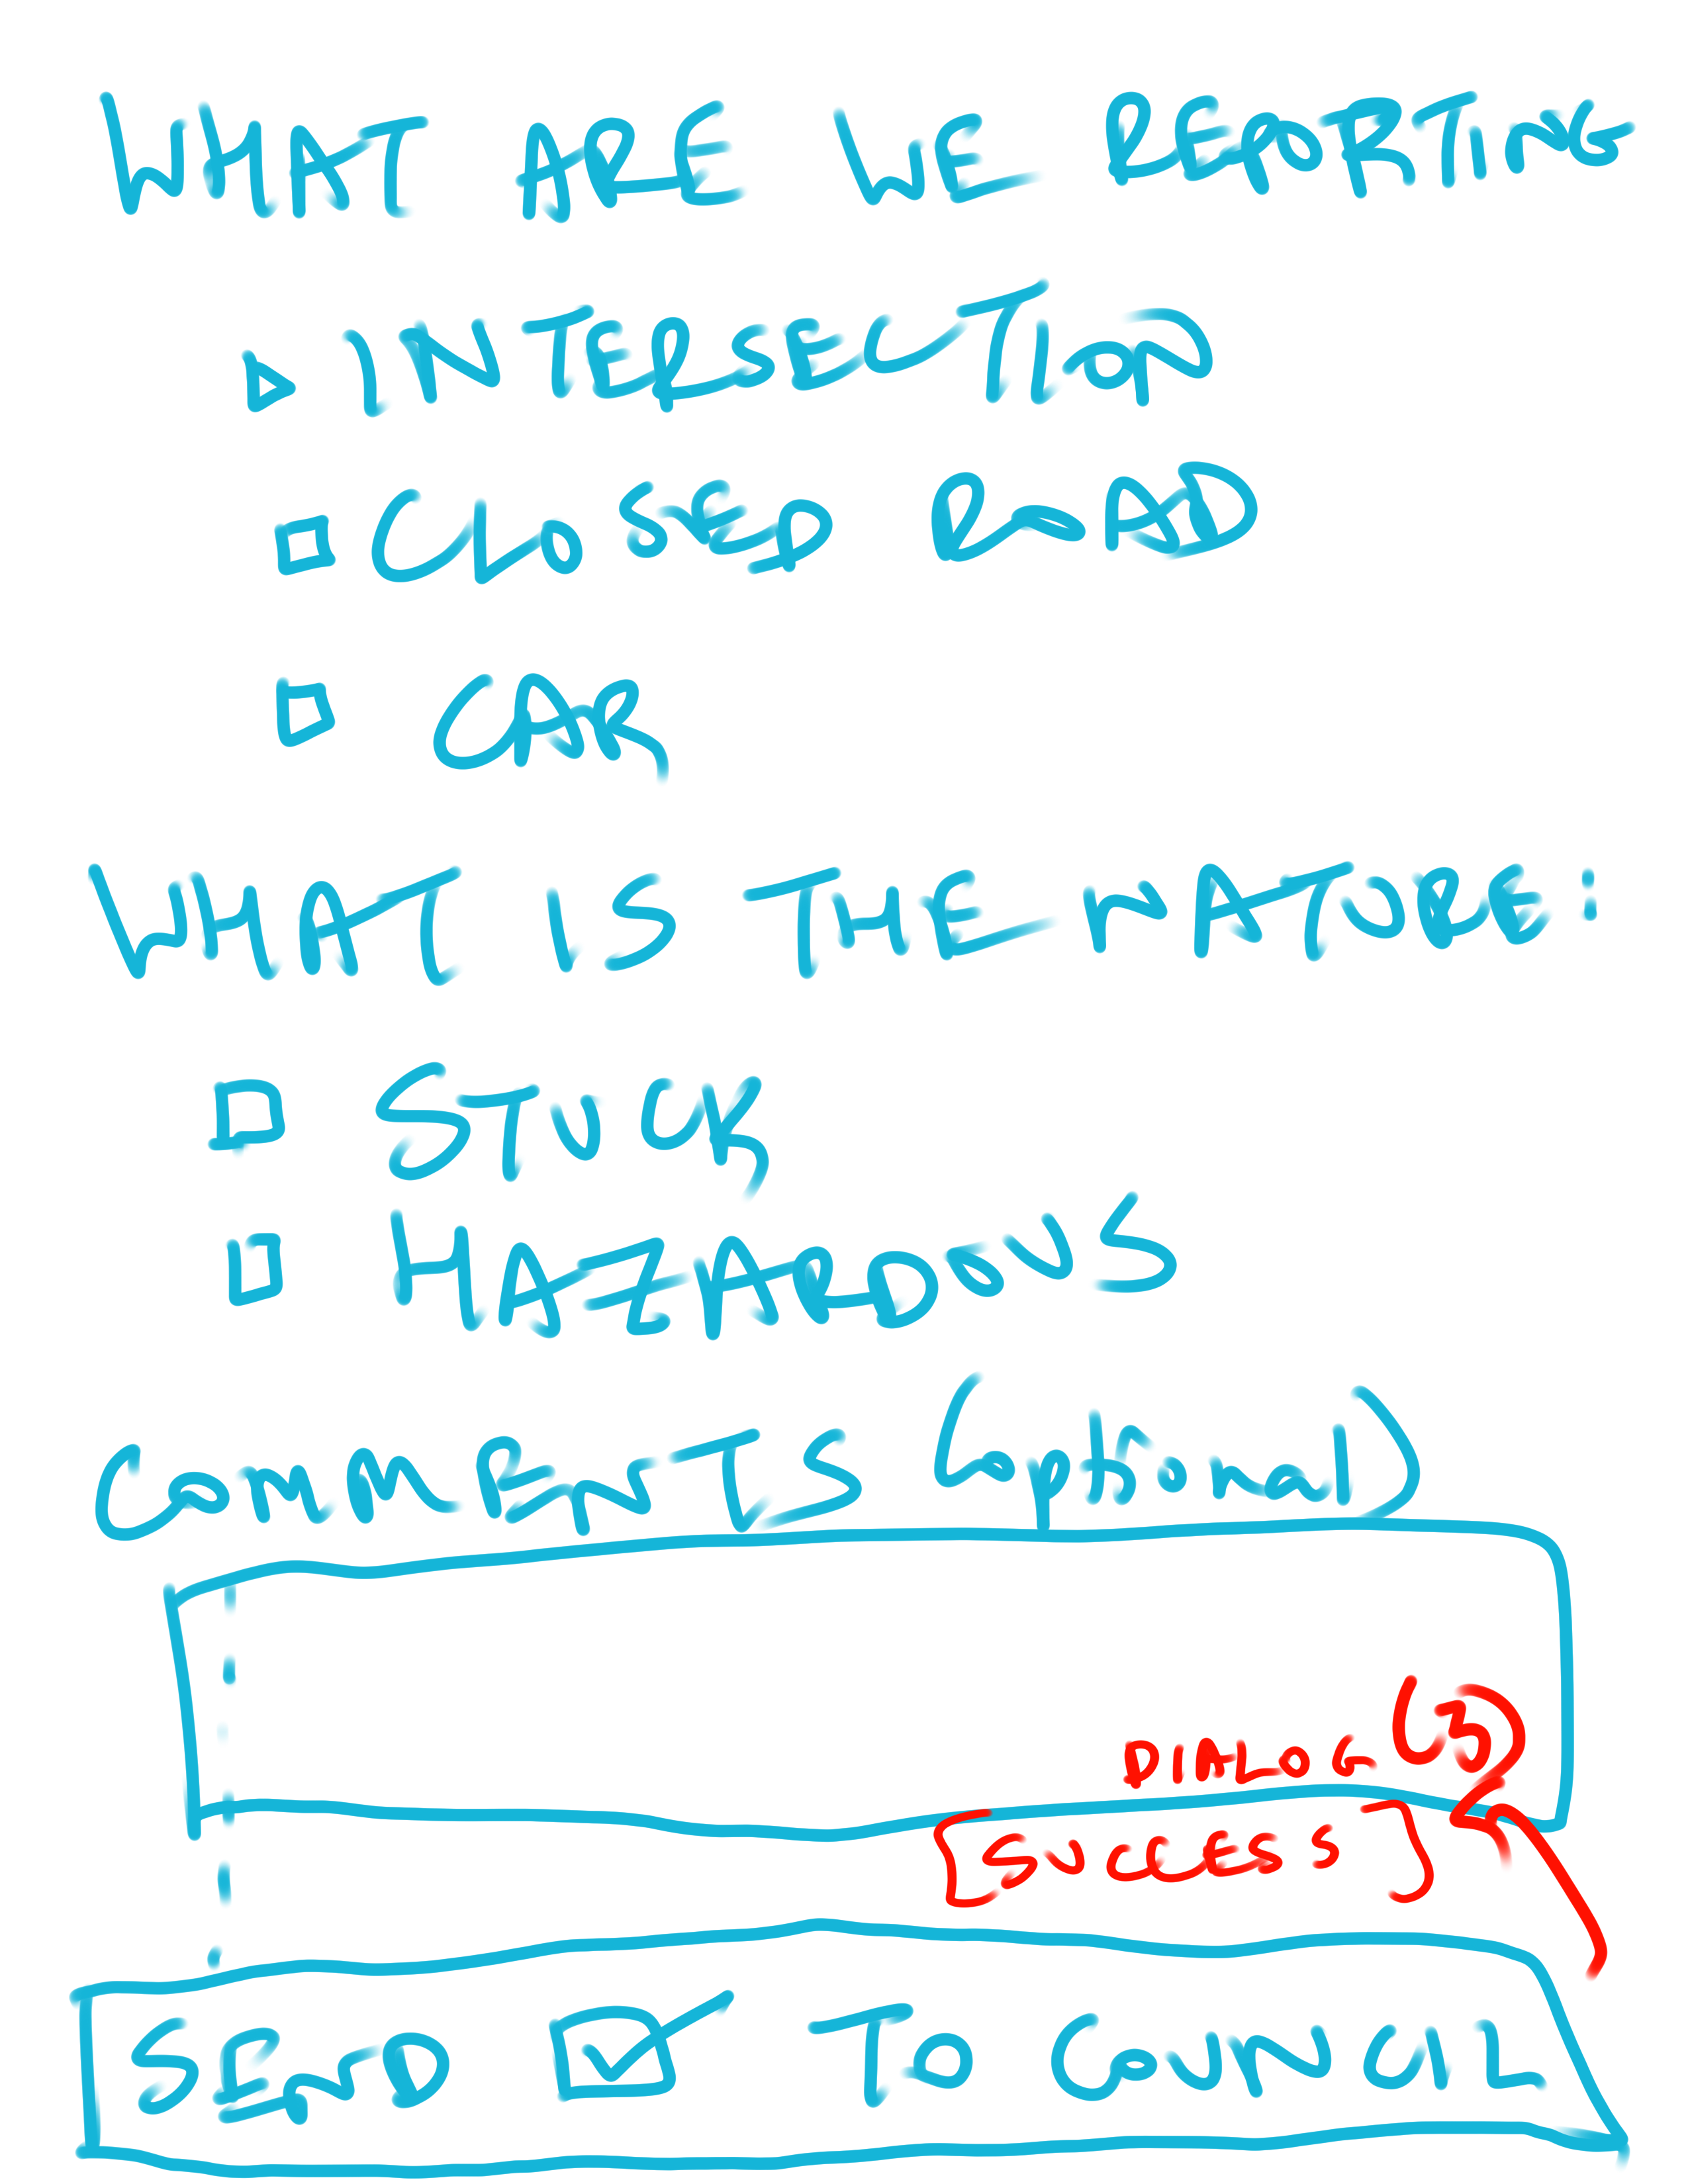 WHAT ARE WE REPORTING
INTERSECTION
CLOSED ROAD
CAR
WHAT IS THE NATURE:
STUCK
HAZARDOUS
COMMENTS (optional)
DIALOG (3)
[SUCCESS]
SEND ☑ TO COUNCIL